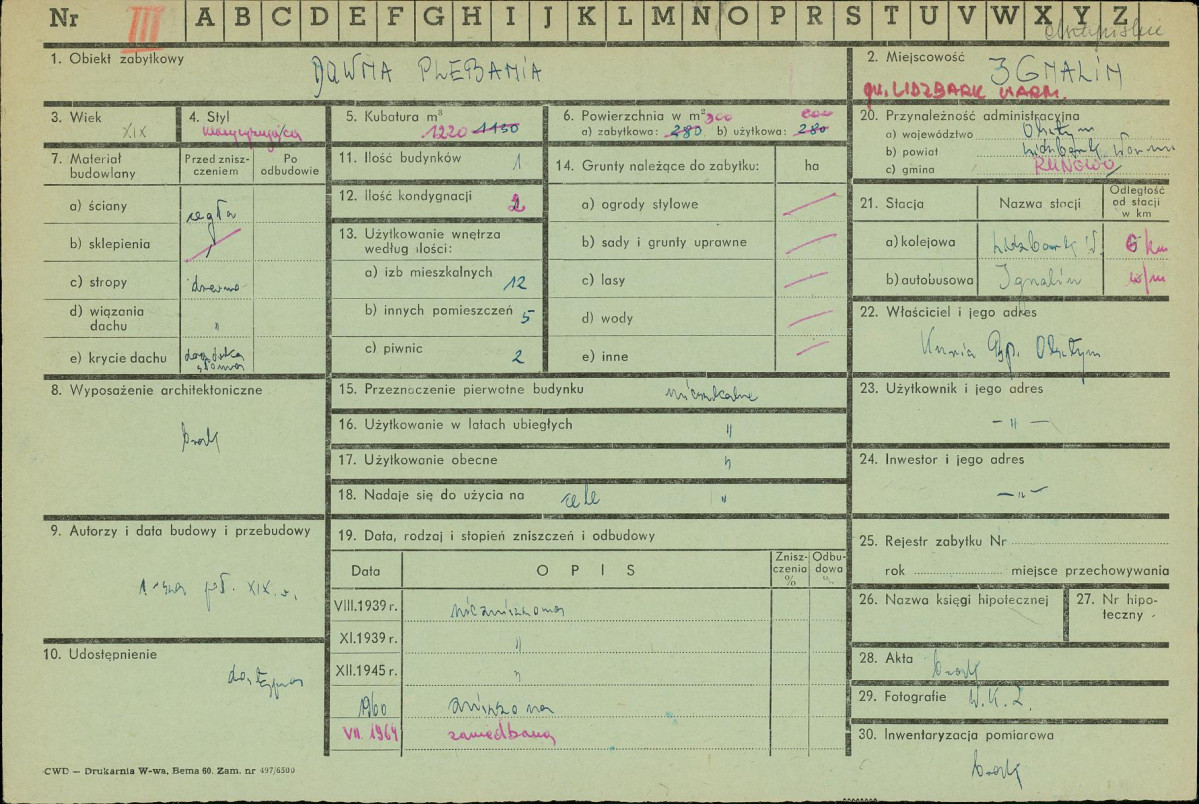 Nr III A B C D E F G H I J K L M N O P R S T U V W X Y Z
1. Obiekt zabytkowy DAWNA PLEBANIA
2. Miejscowość IGNALIN
pow. LIDZBARK WARM.
3. Wiek XIX
4. Styl
5. Kubatura m³ 1220 1150
6. Powierzchnia w m² 300
a) zabytkowa: 280 b) użytkowa: 280
20. Przynależność administracyjna
a) województwo Olsztyn
b) powiat Lidzbark Warm.
c) gmina RUNOWO
7. Materiał budowlany
Przed zniszczeniem
Po odbudowie
a) ściany cegła
b) sklepienia
c) stropy drewno
d) wiązania dachu "
e) krycie dachu dachówka
11. Ilość budynków 1
12. Ilość kondygnacji 2
13. Użytkowanie wnętrza według ilości:
a) izb mieszkalnych 12
b) innych pomieszczeń 5
c) piwnic 2
14. Grunty należące do zabytku: ha
a) ogrody stylowe
b) sady i grunty uprawne
c) lasy
d) wody
e) inne
21. Stacja
Nazwa stacji
Odległość od stacji w km
a) kolejowa Lidzbark W. 6 km
b) autobusowa Ignalin w/m
22. Właściciel i jego adres
Kuria Bp. Olsztyn
8. Wyposażenie architektoniczne
brak
15. Przeznaczenie pierwotne budynku mieszkalne
16. Użytkowanie w latach ubiegłych "
17. Użytkowanie obecne "
18. Nadaje się do użycia na cele "
23. Użytkownik i jego adres
— " —
24. Inwestor i jego adres
— " —
9. Autorzy i data budowy i przebudowy
1-sza poł. XIX w.
19. Data, rodzaj i stopień zniszczeń i odbudowy
Data
OPIS
Zniszczenia %
Odbudowa %
VIII.1939 r. niezniszczona
XI.1939 r. "
XII.1945 r. "
1960 zniszczona
VII. 1964 zaniedbana
25. Rejestr zabytku Nr
rok miejsce przechowywania
26. Nazwa księgi hipotecznej
27. Nr hipoteczny
10. Udostępnienie
dostępna
28. Akta brak
29. Fotografie W.K.Z.
30. Inwentaryzacja pomiarowa
brak
CWD — Drukarnia W-wa, Bema 60. Zam. nr 497/6500